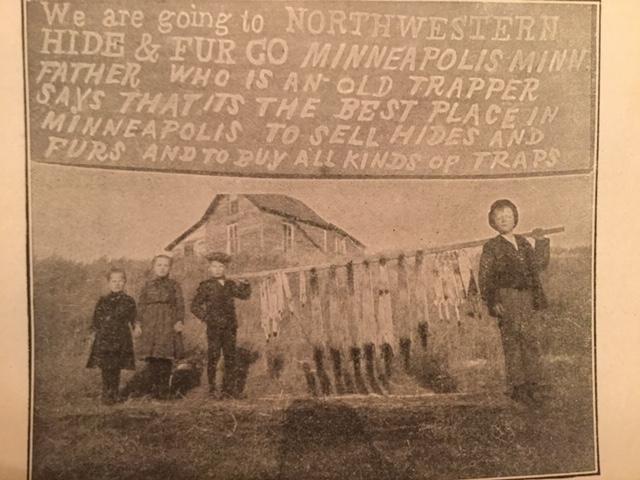 We are going to NORTHWESTERN
HIDE & FUR CO MINNEAPOLIS MINN
FATHER WHO IS AN OLD TRAPPER
SAYS THAT ITS THE BEST PLACE IN
MINNEAPOLIS TO SELL HIDES AND
FURS AND TO BUY ALL KINDS OF TRAPS